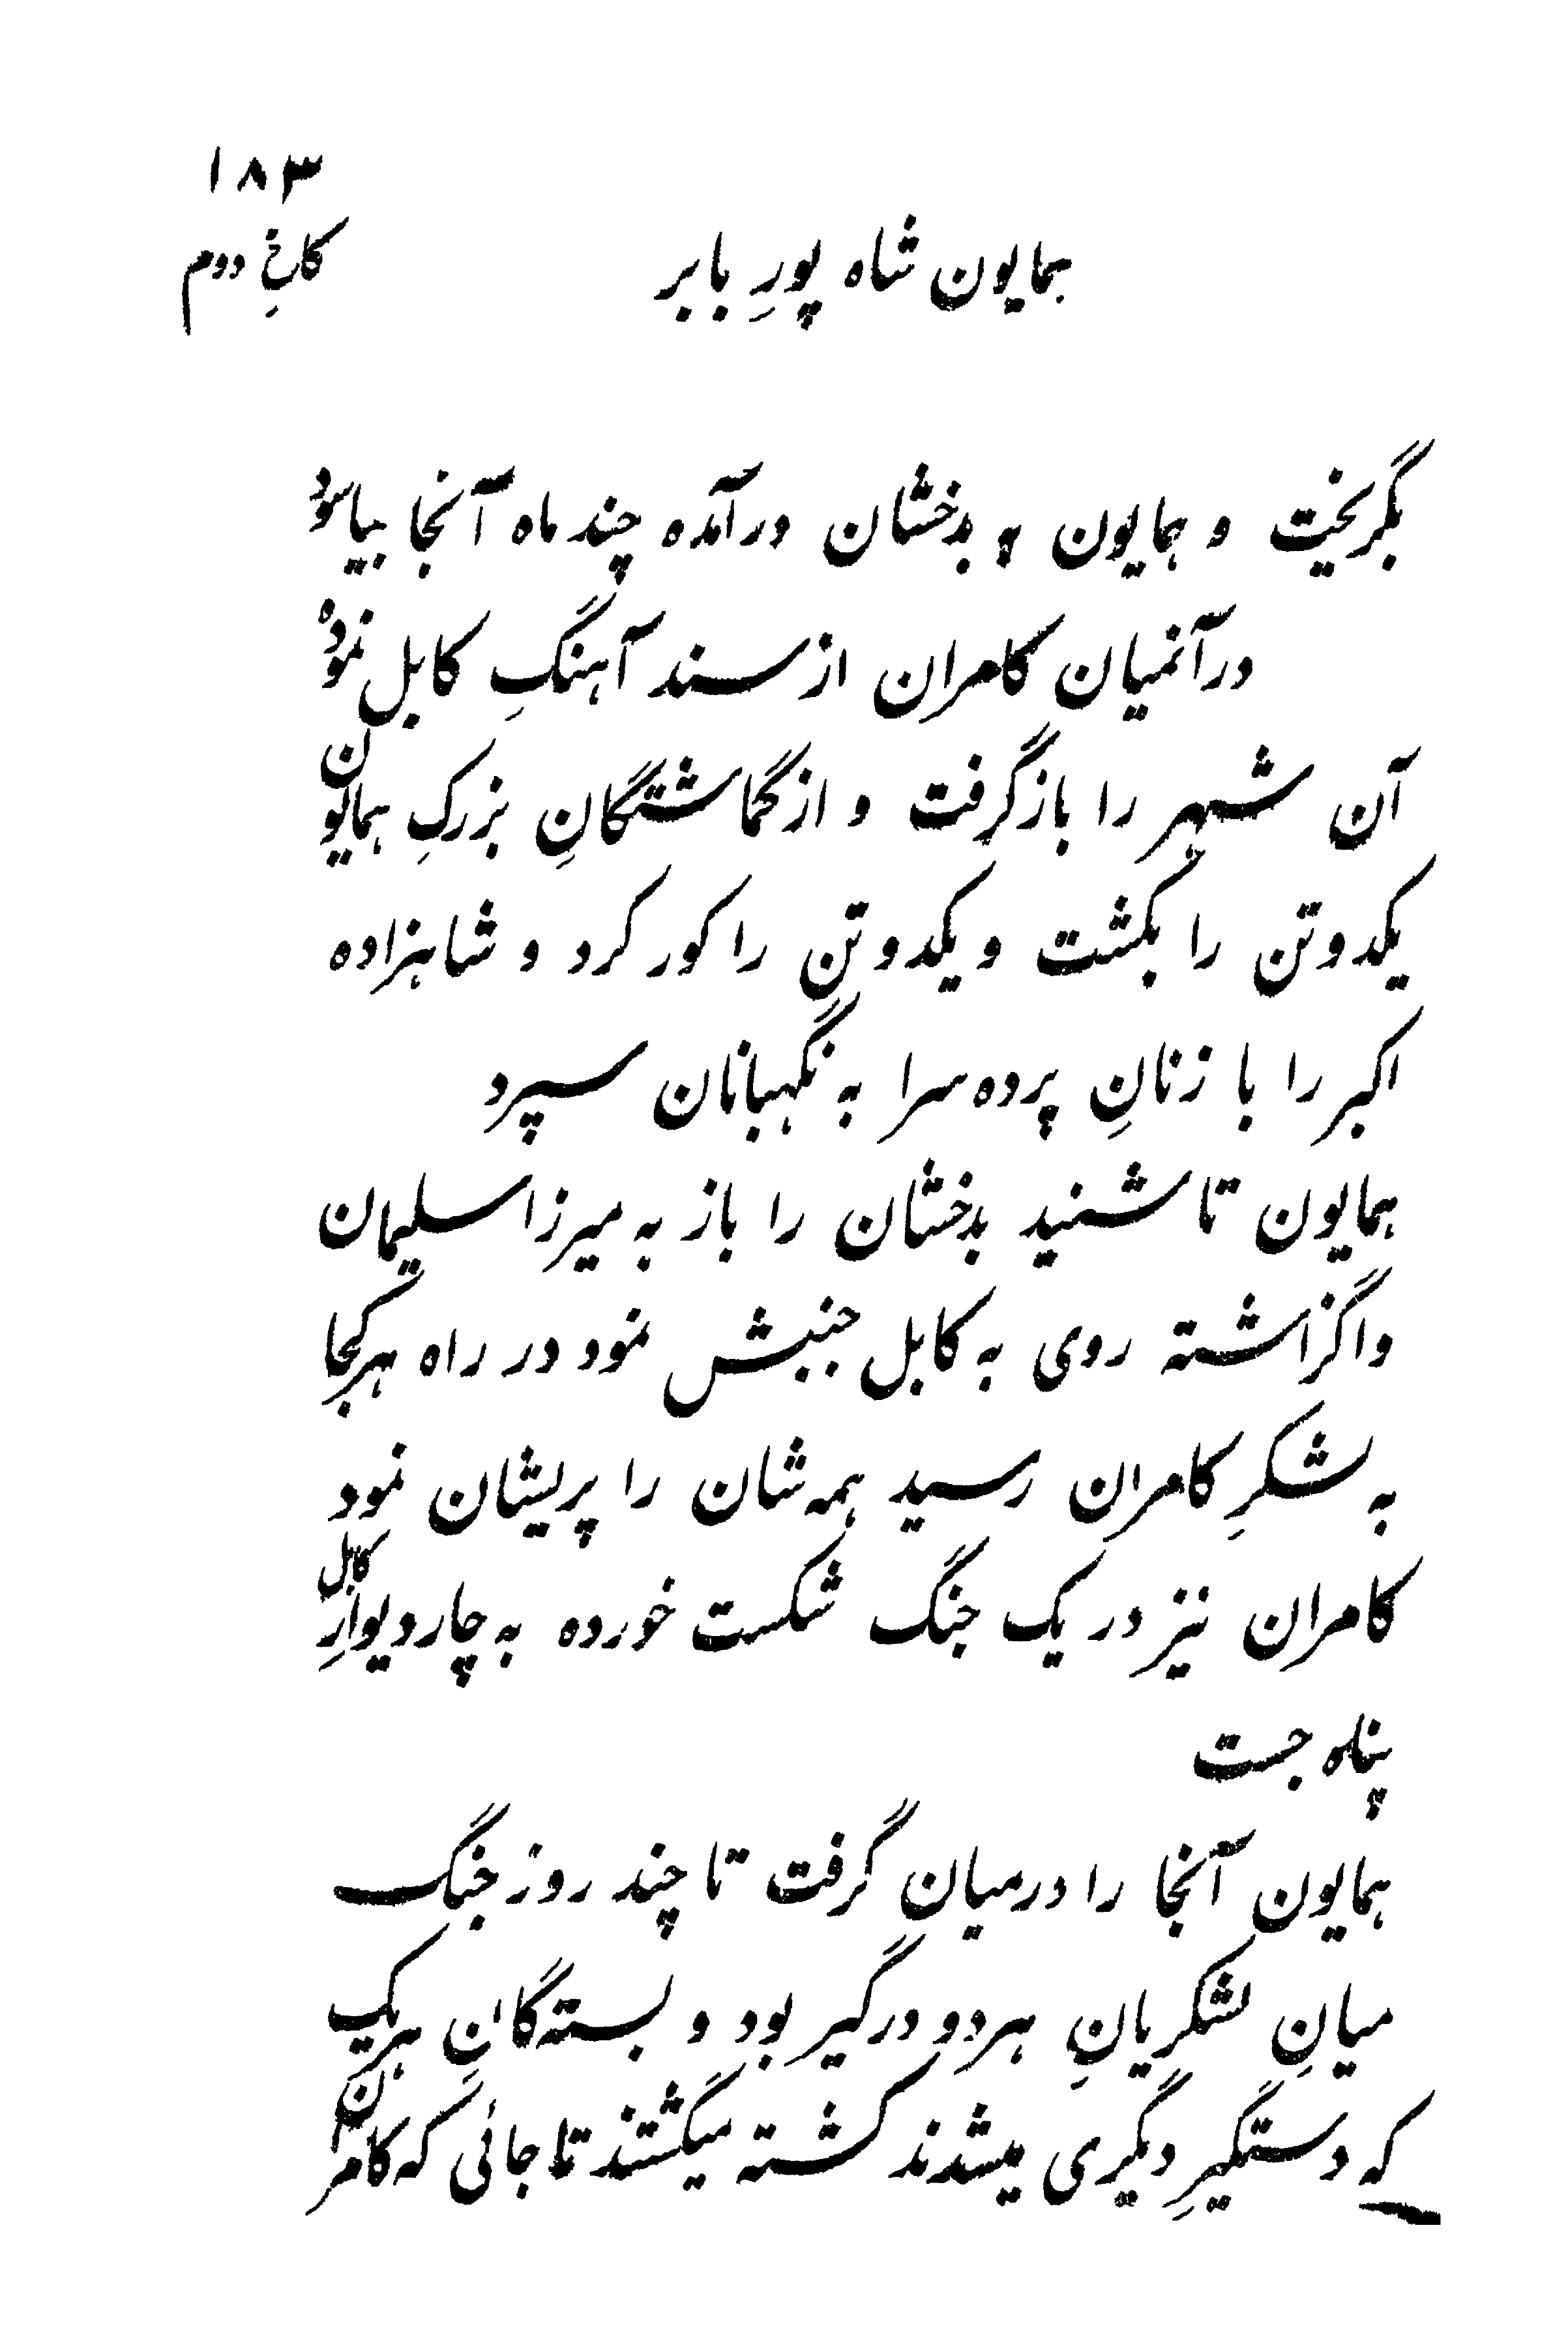 ۱۸۳
کاخِ دوم
همایون شاه پورِ بابر
بگریخت و همایون به بدخشان درآمده چند ماه آنجا بیاسود
درآنمیان کامران از سند آهنگِ کابل نموده
آن شهر را بازگرفت و از گماشتگانِ بزرگِ همایون
یکدوتن را بکشت و یکدوتن را کور کرد و شاهزاده
اکبر را با زنانِ پرده سرا به نگهبانان سپرد
همایون تا شنید بدخشان را باز به میرزا سلیمان
واگزاشته روی به کابل جنبش نمود در راه هرکجا
به لشکرِ کامران رسید همه شان را پریشان نمود
کامران نیز در یک جنگ شکست خورده به چاردیوارِ کابل
پناه جست
همایون آنجا را درمیان گرفت تا چند روز جنگ
میانِ لشکریانِ هردو درگیر بود و بسته‌گانِ هریک
که دستگیرِ دیگری میشدند کشته میگشتند تا جائی که کامران